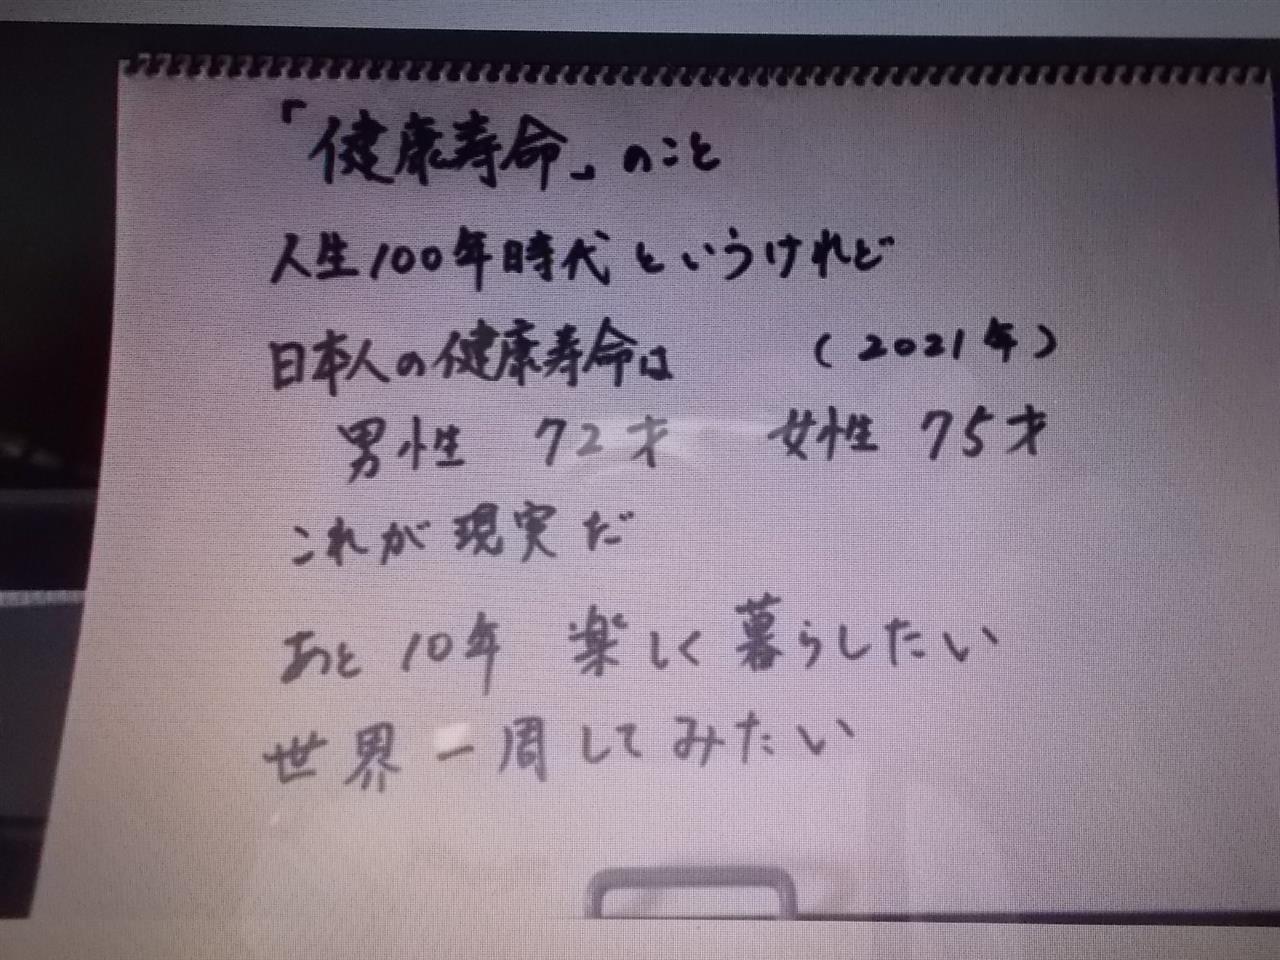 「健康寿命」のこと
人生100年時代というけれど
日本人の健康寿命は （2021年）
男性 72才 女性 75才
これが現実だ
あと10年 楽しく暮らしたい
世界一周してみたい